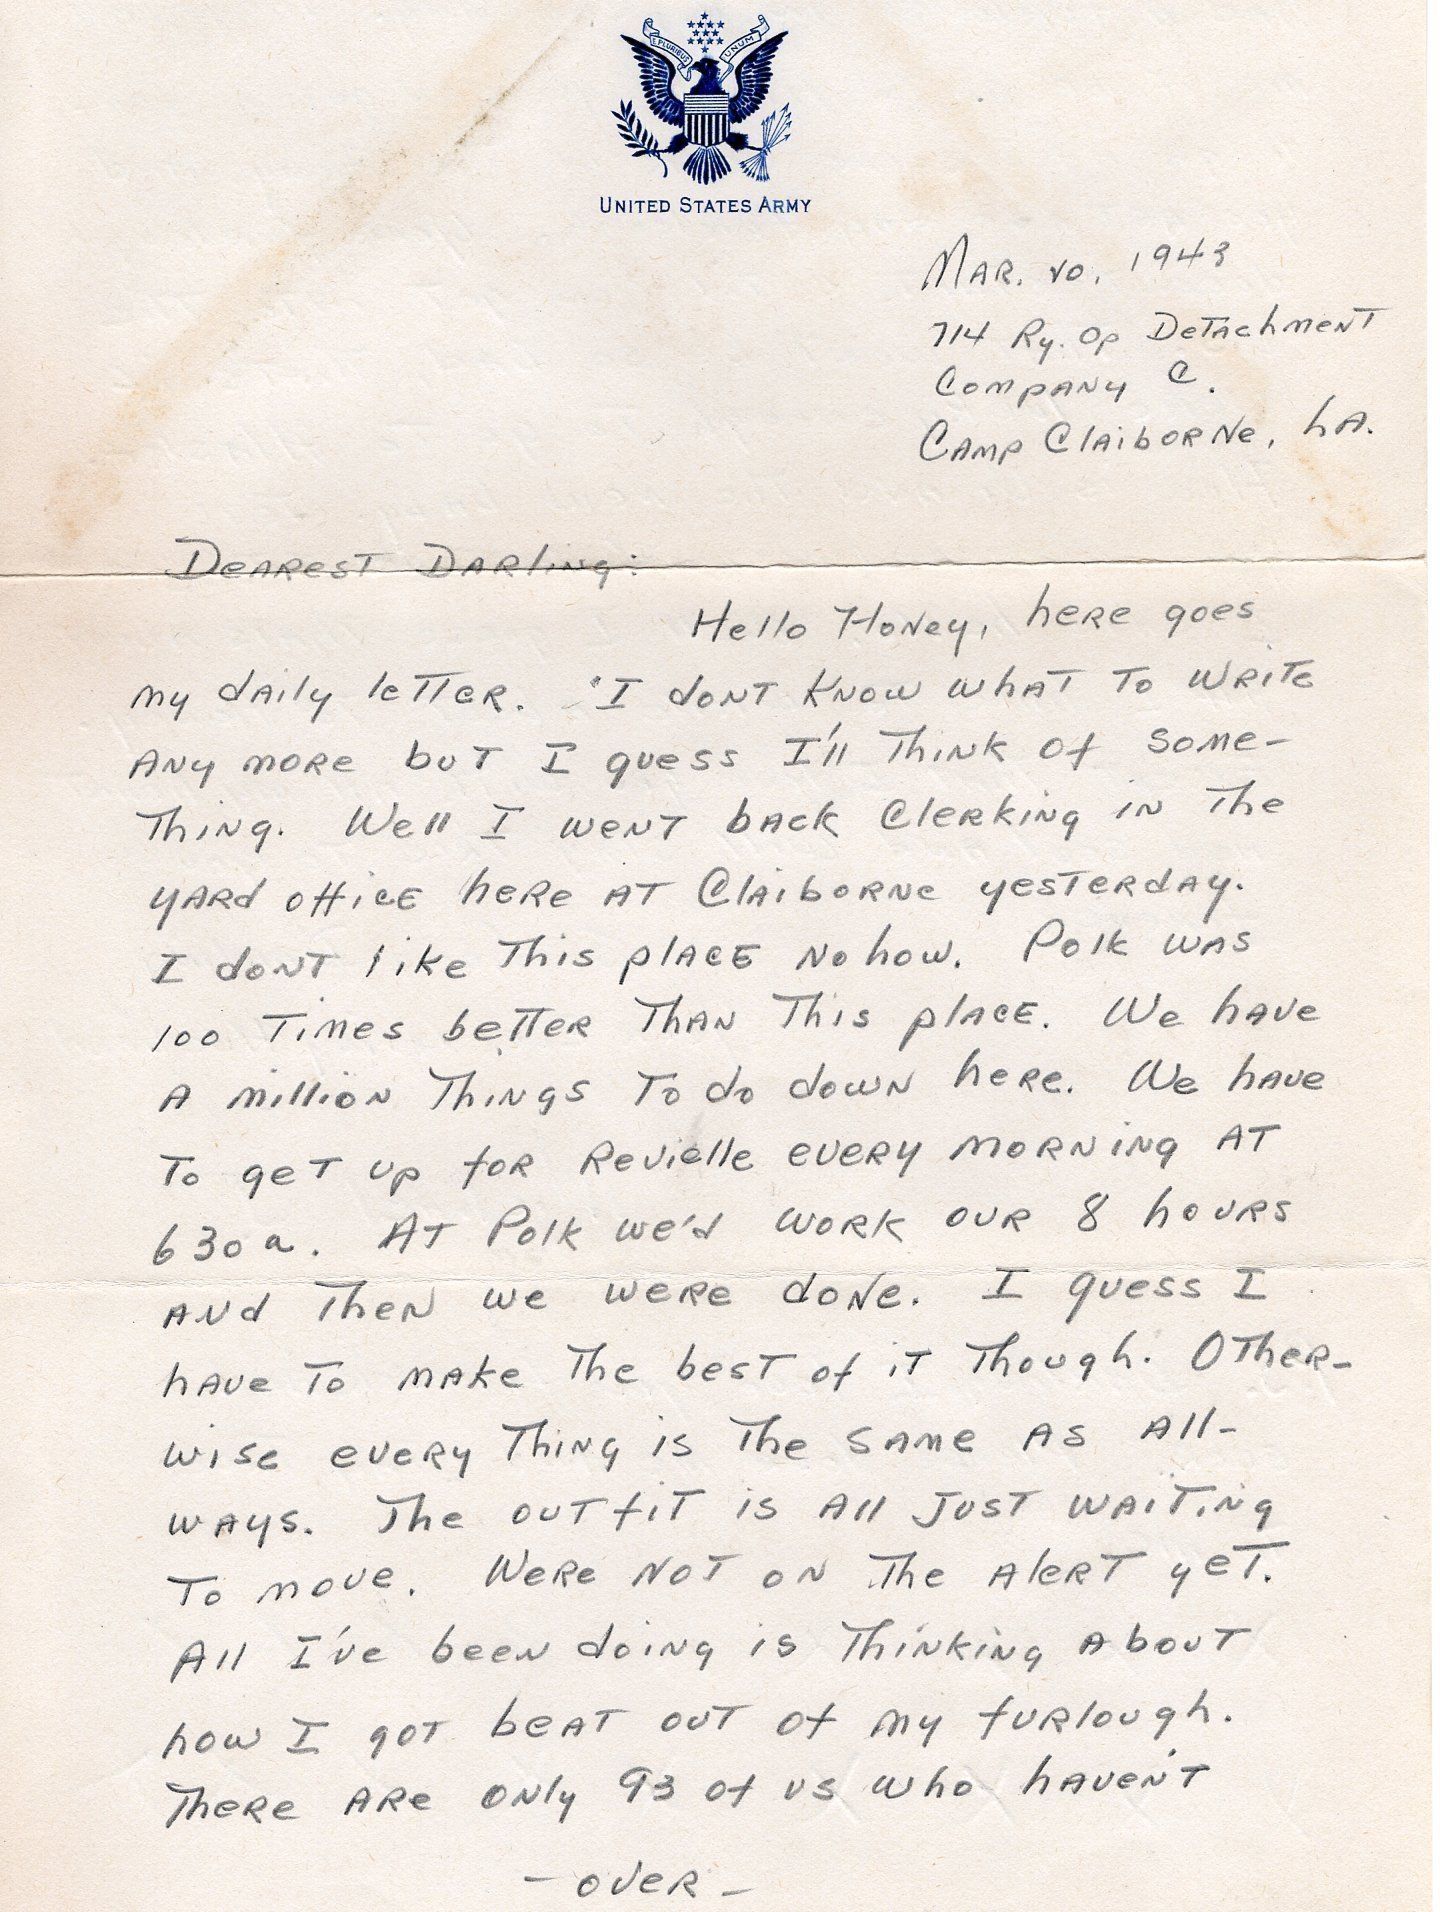 E PLURIBUS UNUM
UNITED STATES ARMY
Mar. 20, 1943
714 Ry. Op Detachment
Company C.
Camp Claiborne, La.
Dearest Darling:
Hello Honey, here goes
my daily letter. I dont know what to write
any more but I guess I'll think of some-
thing. Well I went back clerking in the
yard office here at Claiborne yesterday.
I dont like this place no how. Polk was
100 times better than this place. We have
a million things to do down here. We have
to get up for Revielle every morning at
630a. At Polk we'd work our 8 hours
and then we were done. I guess I
have to make the best of it though. Other-
wise every thing is the same as all-
ways. The outfit is all just waiting
to move. Were not on the alert yet.
All I've been doing is thinking about
how I got beat out of my furlough.
There are only 93 of us who haven't
- over -